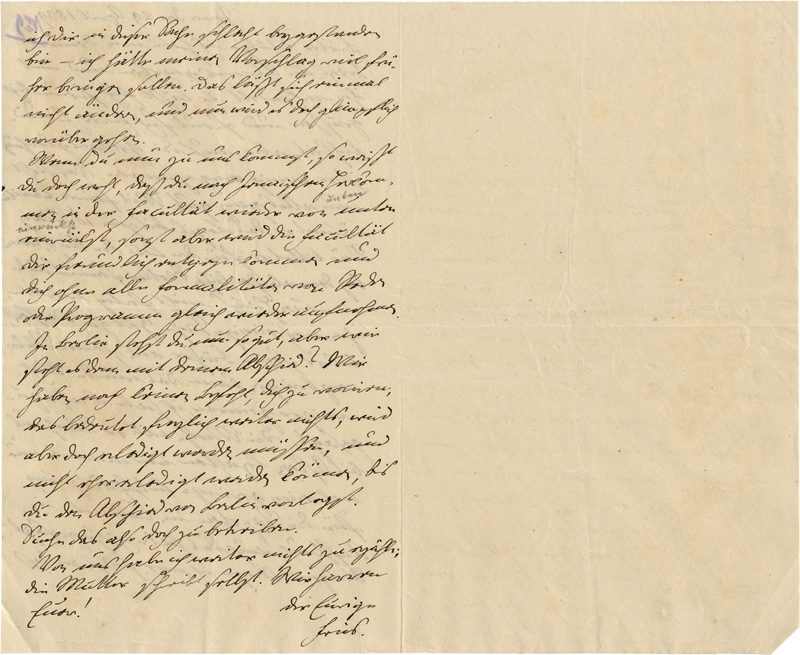 ich dir in dieser Sache schlecht beygestanden
bin – ich hätte meinen Vorschlag viel frü-
her bringen sollen. Das läßt sich einmal
nicht ändern, und nun wird es doch glücklich
vorübergehen.
Wenn du nun zu uns kommst, so weißt
du doch wohl, daß du nach Jenaischem Herkom-
men in der Facultät wieder von unten
unten
einrückst
einrückst, sonst aber wird die Facultät
dir freundlich entgegen kommen und
dich ohne alle Formalitäten von Rede
oder Programm gleich wieder aufnehmen.
In Berlin stehst du nun so gut, aber wie
steht es denn mit deinem Abschied? Wir
haben noch keinen Befehl, dich zu
das bedeutet freylich weiter nichts, wird
aber doch erledigt werden müssen, und
nicht eher erledigt werden können, bis
du den Abschied von Berlin vorlegst.
Suche das also doch zu betreiben.
Von uns habe ich weiter nichts zu erzählen;
die Mutter schreibt selbst. Wir harren
Euer!
der Eurige
Fries.